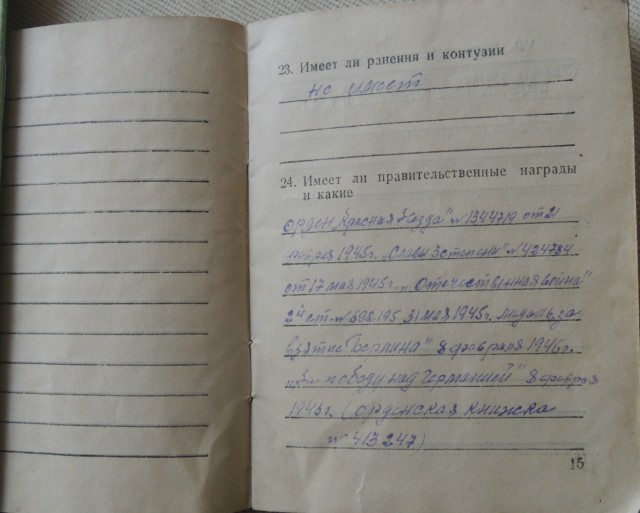 23. Имеет ли ранения и контузии
не имеет
24. Имеет ли правительственные награды
и какие
Орден „Красная Звезда" № 1344719 от 21
1945г. „Славы 3 степени" № 424784
от 17 мая 1945г. „Отечественная война"
2й ст. № 698195 31 мая 1945г. медаль за
взятие Берлина" 8 февраля 1946г.
„За победу над Германией" 8 февраля
1946г. (орденская книжка
№ 413247)
15